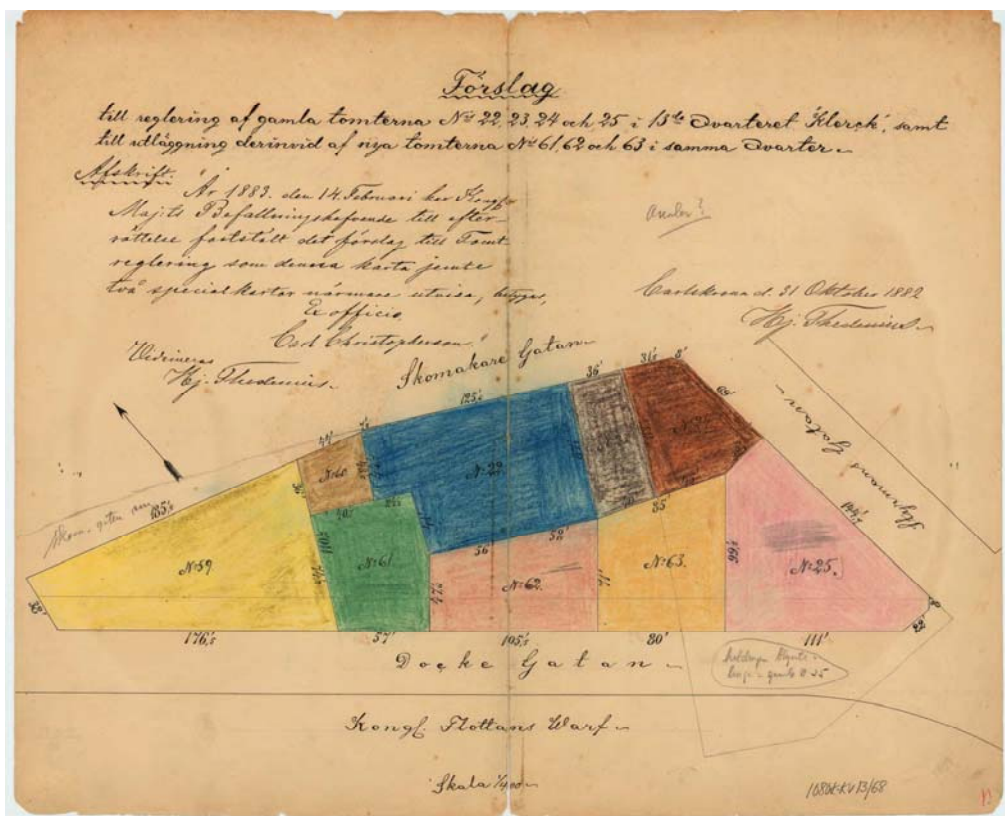 Förslag
till reglering af gamla tomterna No 22, 23, 24 och 25 i 13de Qvarteret "Klerck", samt
till utläggning derinvid af nya tomterna No 61, 62 och 63 i samma Qvarter
Afskrift.
År 1883. den 14. Februari har Kongl.
Maj:ts Befallningshafvande till efter-
rättelse fastställt det förslag till Tomt-
reglering som denna karta jemte
två specialkartor närmare utvisa, betygar,
Ex officio,
Carl Christopherson
Vidimeras
Hj. Thedenius
Carlskrona d. 31 Oktober 1882
Hj. Thedenius
Skomakare Gatan
Styrmans Gatan
125's
36'
31's
8'
44'
185's
No 60
No 22
No 59
No 61
No 62.
No 63.
No 25.
70'
56'
52'
35'
71'
32'
8'
22'
176's
57'
105's
80'
111'
Docke Gatan
Kongl. Flottans Warf
Skala 1/400
1080K-KV13/68